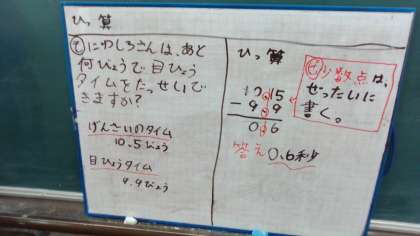 ひっ算
てにわしろさんは、あと
何びょうで目ひょう
タイムをたっせいで
きますか?
げんざいのタイム
10.5びょう
目ひょうタイム
9.9びょう
ひっ算
10.5
-9.9
0.6
答え 0.6秒
ぜ 小数点は、
ぜったいに
書く。